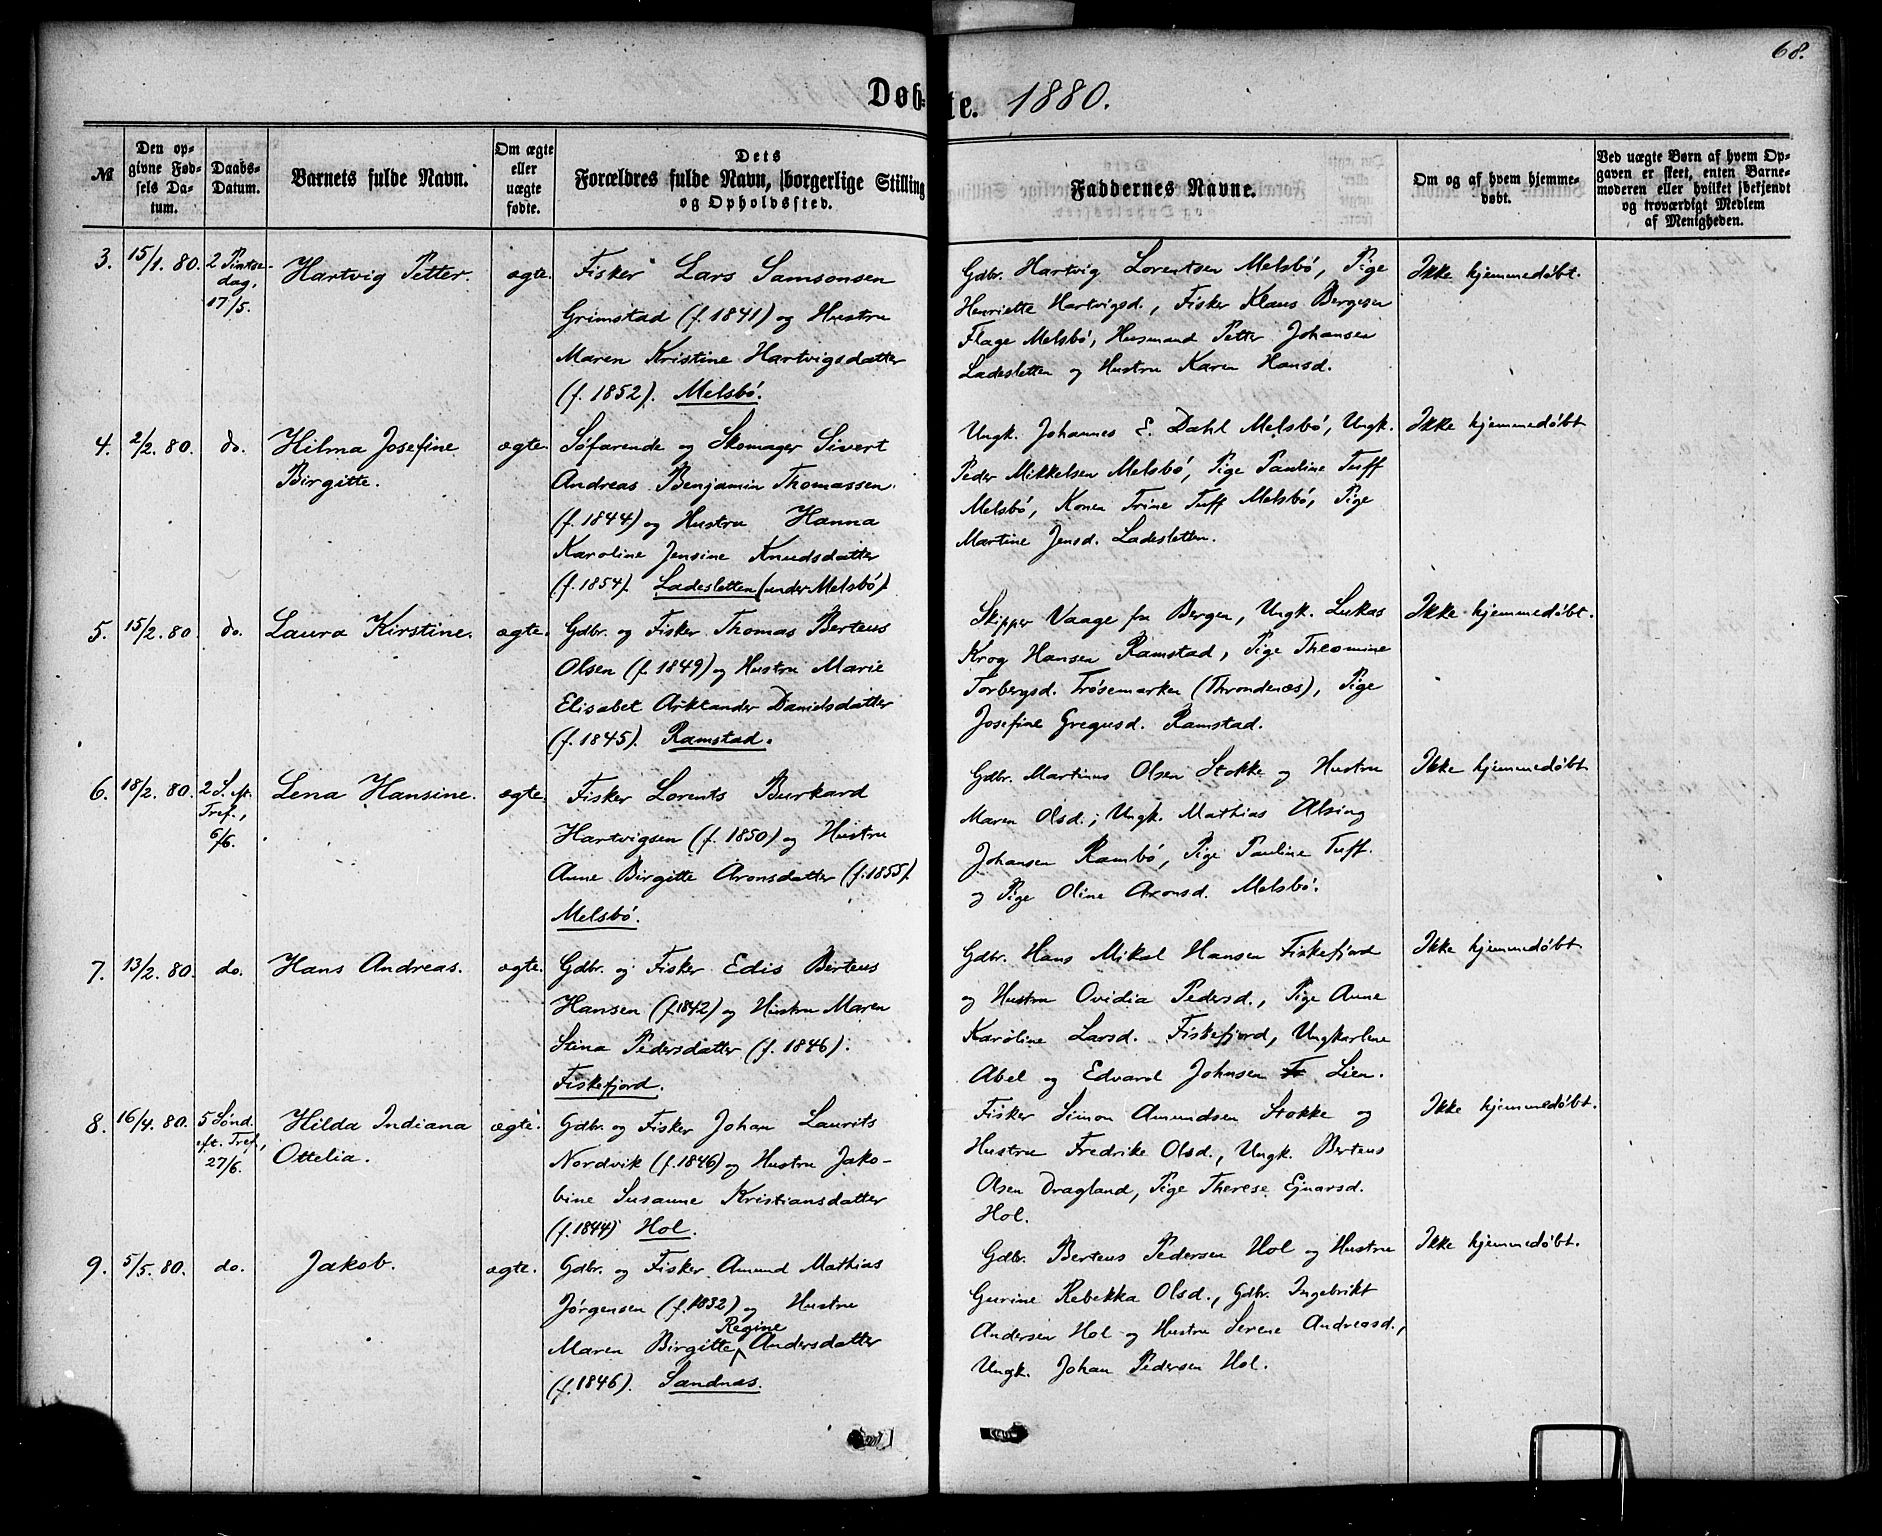 68.
Døbte. 1880.
№
Den opgivne Fødsels Datum.
Daabs-Datum.
Barnets fulde Navn.
Om ægte eller uægte fødte.
Dets Forældres fulde Navn, borgerlige Stilling og Opholdssted.
Faddernes Navne.
Om og af hvem hjemmedøbt.
Ved uægte Børn af hvem Opgaven er skeet, enten Barnemoderen eller hvilket bekjendt og troværdigt Medlem af Menigheden.
3.
15/1. 80.
2 Pintse-
dag,
17/5.
Hartvig Petter.
ægte.
Fisker Lars Samsonsen
Grimstad (f. 1841) og Hustru
Maren Kristine Hartvigsdatter
(f. 1852). Melsbó.
Gdbr. Hartvig Lorentsen Melsbó, Pige
Henriette Hartvigsd., Fisker Klaus Bergesen
Flage Melsbó, Husmand Petter Johansen
Ladesletten og Hustru Karen Hansd.
Ikke hjemmedøbt.
4.
2/2. 80.
do.
Hilma Josefine
Birgitte.
ægte.
Søfarende og Skomager Sivert
Andreas Benjamin Thomassen
(f. 1844) og Hustru Hanna
Karoline Jensine Knudsdatter
(f. 1854). Ladesletten (under Melsbó).
Ungk. Johannes E. Dahl Melsbó, Ungk.
Peder Mikkelsen Melsbó, Pige Pauline Tuff
Melsbó, Konen Trine Tuff Melsbó, Pige
Martine Jensd. Ladesletten.
Ikke hjemmedøbt
5.
15/2. 80.
do.
Laura Kirstine.
ægte.
Gdbr. og Fisker Thomas Berteus
Olsen (f. 1849) og Hustru Marie
Elisabet Arktander Danielsdatter
(f. 1845). Ramstad.
Skipper Vaage fra Bergen, Ungk. Lukas
Krog Hansen Ramstad, Pige Theomine
Torbergsd. Trøsemarken (Throndenæs), Pige
Josefine Gregusd. Ramstad.
Ikke hjemmedøbt.
6.
18/2. 80.
2 S. eft.
Tref.,
6/6.
Lena Hansine.
ægte.
Fisker Lorents Burkard
Hartvigsen (f. 1850) og Hustru
Anne Birgitte Aronsdatter (f. 1855).
Melsbó.
Gdbr. Martinus Olsen Stokke og Hustru
Maren Olsd.; Ungk. Mathias Alsing
Johansen Rambó, Pige Pauline Tuff
og Pige Oline Aronsd. Melsbó.
Ikke hjemmedøbt
7.
13/2. 80.
do.
Hans Andreas.
ægte.
Gdbr. og Fisker Edis Berteus
Hansen (f. 1842) og Hustru Maren
Stina Pedersdatter (f. 1846).
Fiskefjord.
Gdbr. Hans Mikal Hansen Fiskefjord
og Hustru Ovidia Pedersd., Pige Anne
Karoline Larsd. Fiskefjord, Ungkarlene
Abel og Edvard Johnsen Lien.
Ikke hjemmedøbt
8.
16/4. 80.
5 Sønd.
eft. Tref.,
27/6.
Hilda Indiana
Ottelia.
ægte.
Gdbr. og Fisker Johan Laurits
Nordvik (f. 1846) og Hustru Jako-
bine Susanne Kristiansdatter
(f. 1844) Hol.
Fisker Simon Amundsen Stokke og
Hustru Fredrike Olsd., Ungk. Berteus
Olsen Dragland, Pige Therese Ejnarsd.
Hol.
Ikke hjemmedøbt.
9.
5/5. 80.
do.
Jakob.
ægte.
Gdbr. og Fisker Amund Mathias
Jørgensen (f. 1832) og Hustru
Maren Birgitte Regine Andersdatter
(f. 1846). Sandnæs.
Gdbr. Berteus Pedersen Hol og Hustru
Gurine Rebekka Olsd., Gdbr. Ingebrikt
Andersen Hol og Hustru Serene Andreasd.,
Ungk. Johan Pedersen Hol.
Ikke hjemmedøbt.